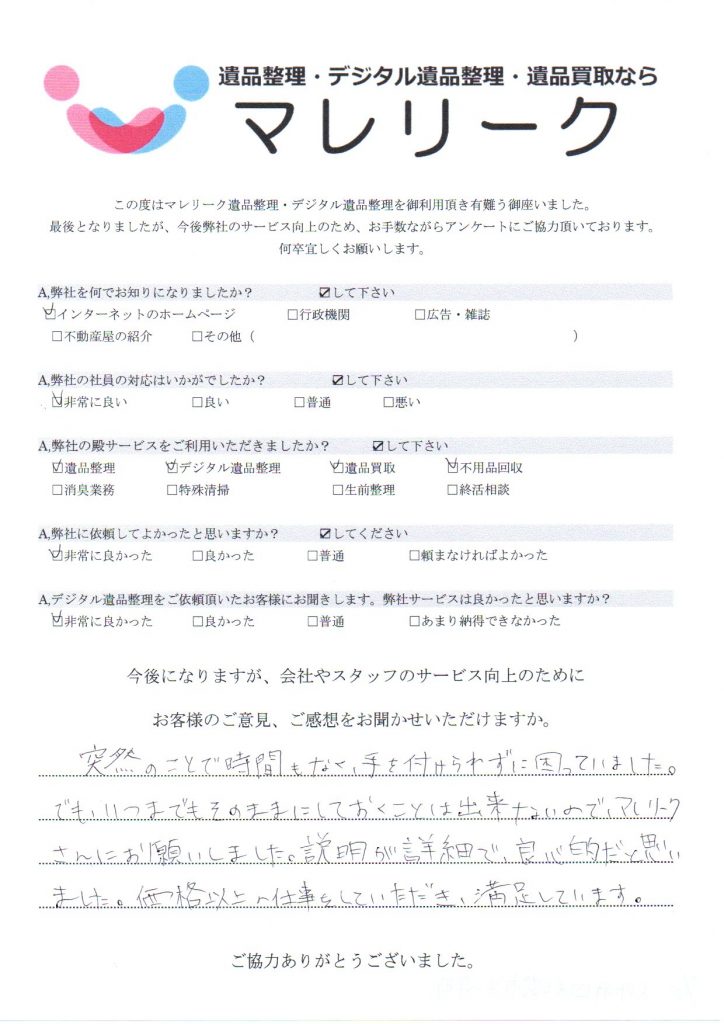 遺品整理・デジタル遺品整理・遺品買取なら
マレリーク
この度はマレリーク遺品整理・デジタル遺品整理を御利用頂き有難う御座いました。
最後となりましたが、今後弊社のサービス向上のため、お手数ながらアンケートにご協力頂いております。
何卒宜しくお願いします。
A,弊社を何でお知りになりましたか？ ☑して下さい
☑インターネットのホームページ □行政機関 □広告・雑誌
□不動産屋の紹介 □その他（ ）
A,弊社の社員の対応はいかがでしたか？ ☑して下さい
☑非常に良い □良い □普通 □悪い
A,弊社の殿サービスをご利用いただきましたか？ ☑して下さい
☑遺品整理 ☑デジタル遺品整理 ☑遺品買取 ☑不用品回収
□消臭業務 □特殊清掃 □生前整理 □終活相談
A,弊社に依頼してよかったと思いますか？ ☑してください
☑非常に良かった □良かった □普通 □頼まなければよかった
A,デジタル遺品整理をご依頼頂いたお客様にお聞きします。弊社サービスは良かったと思いますか？
☑非常に良かった □良かった □普通 □あまり納得できなかった
今後になりますが、会社やスタッフのサービス向上のために
お客様のご意見、ご感想をお聞かせいただけますか。
突然のことで時間もなく、手を付けられずに困っていました。
でも、いつまでもそのままにしておくことは出来ないので、マレリーク
さんにお願いしました。説明が詳細で、良心的だと思い
ました。価格以上の仕事をしていただき、満足しています。
ご協力ありがとうございました。